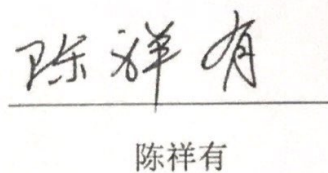 陈祥有
陈祥有